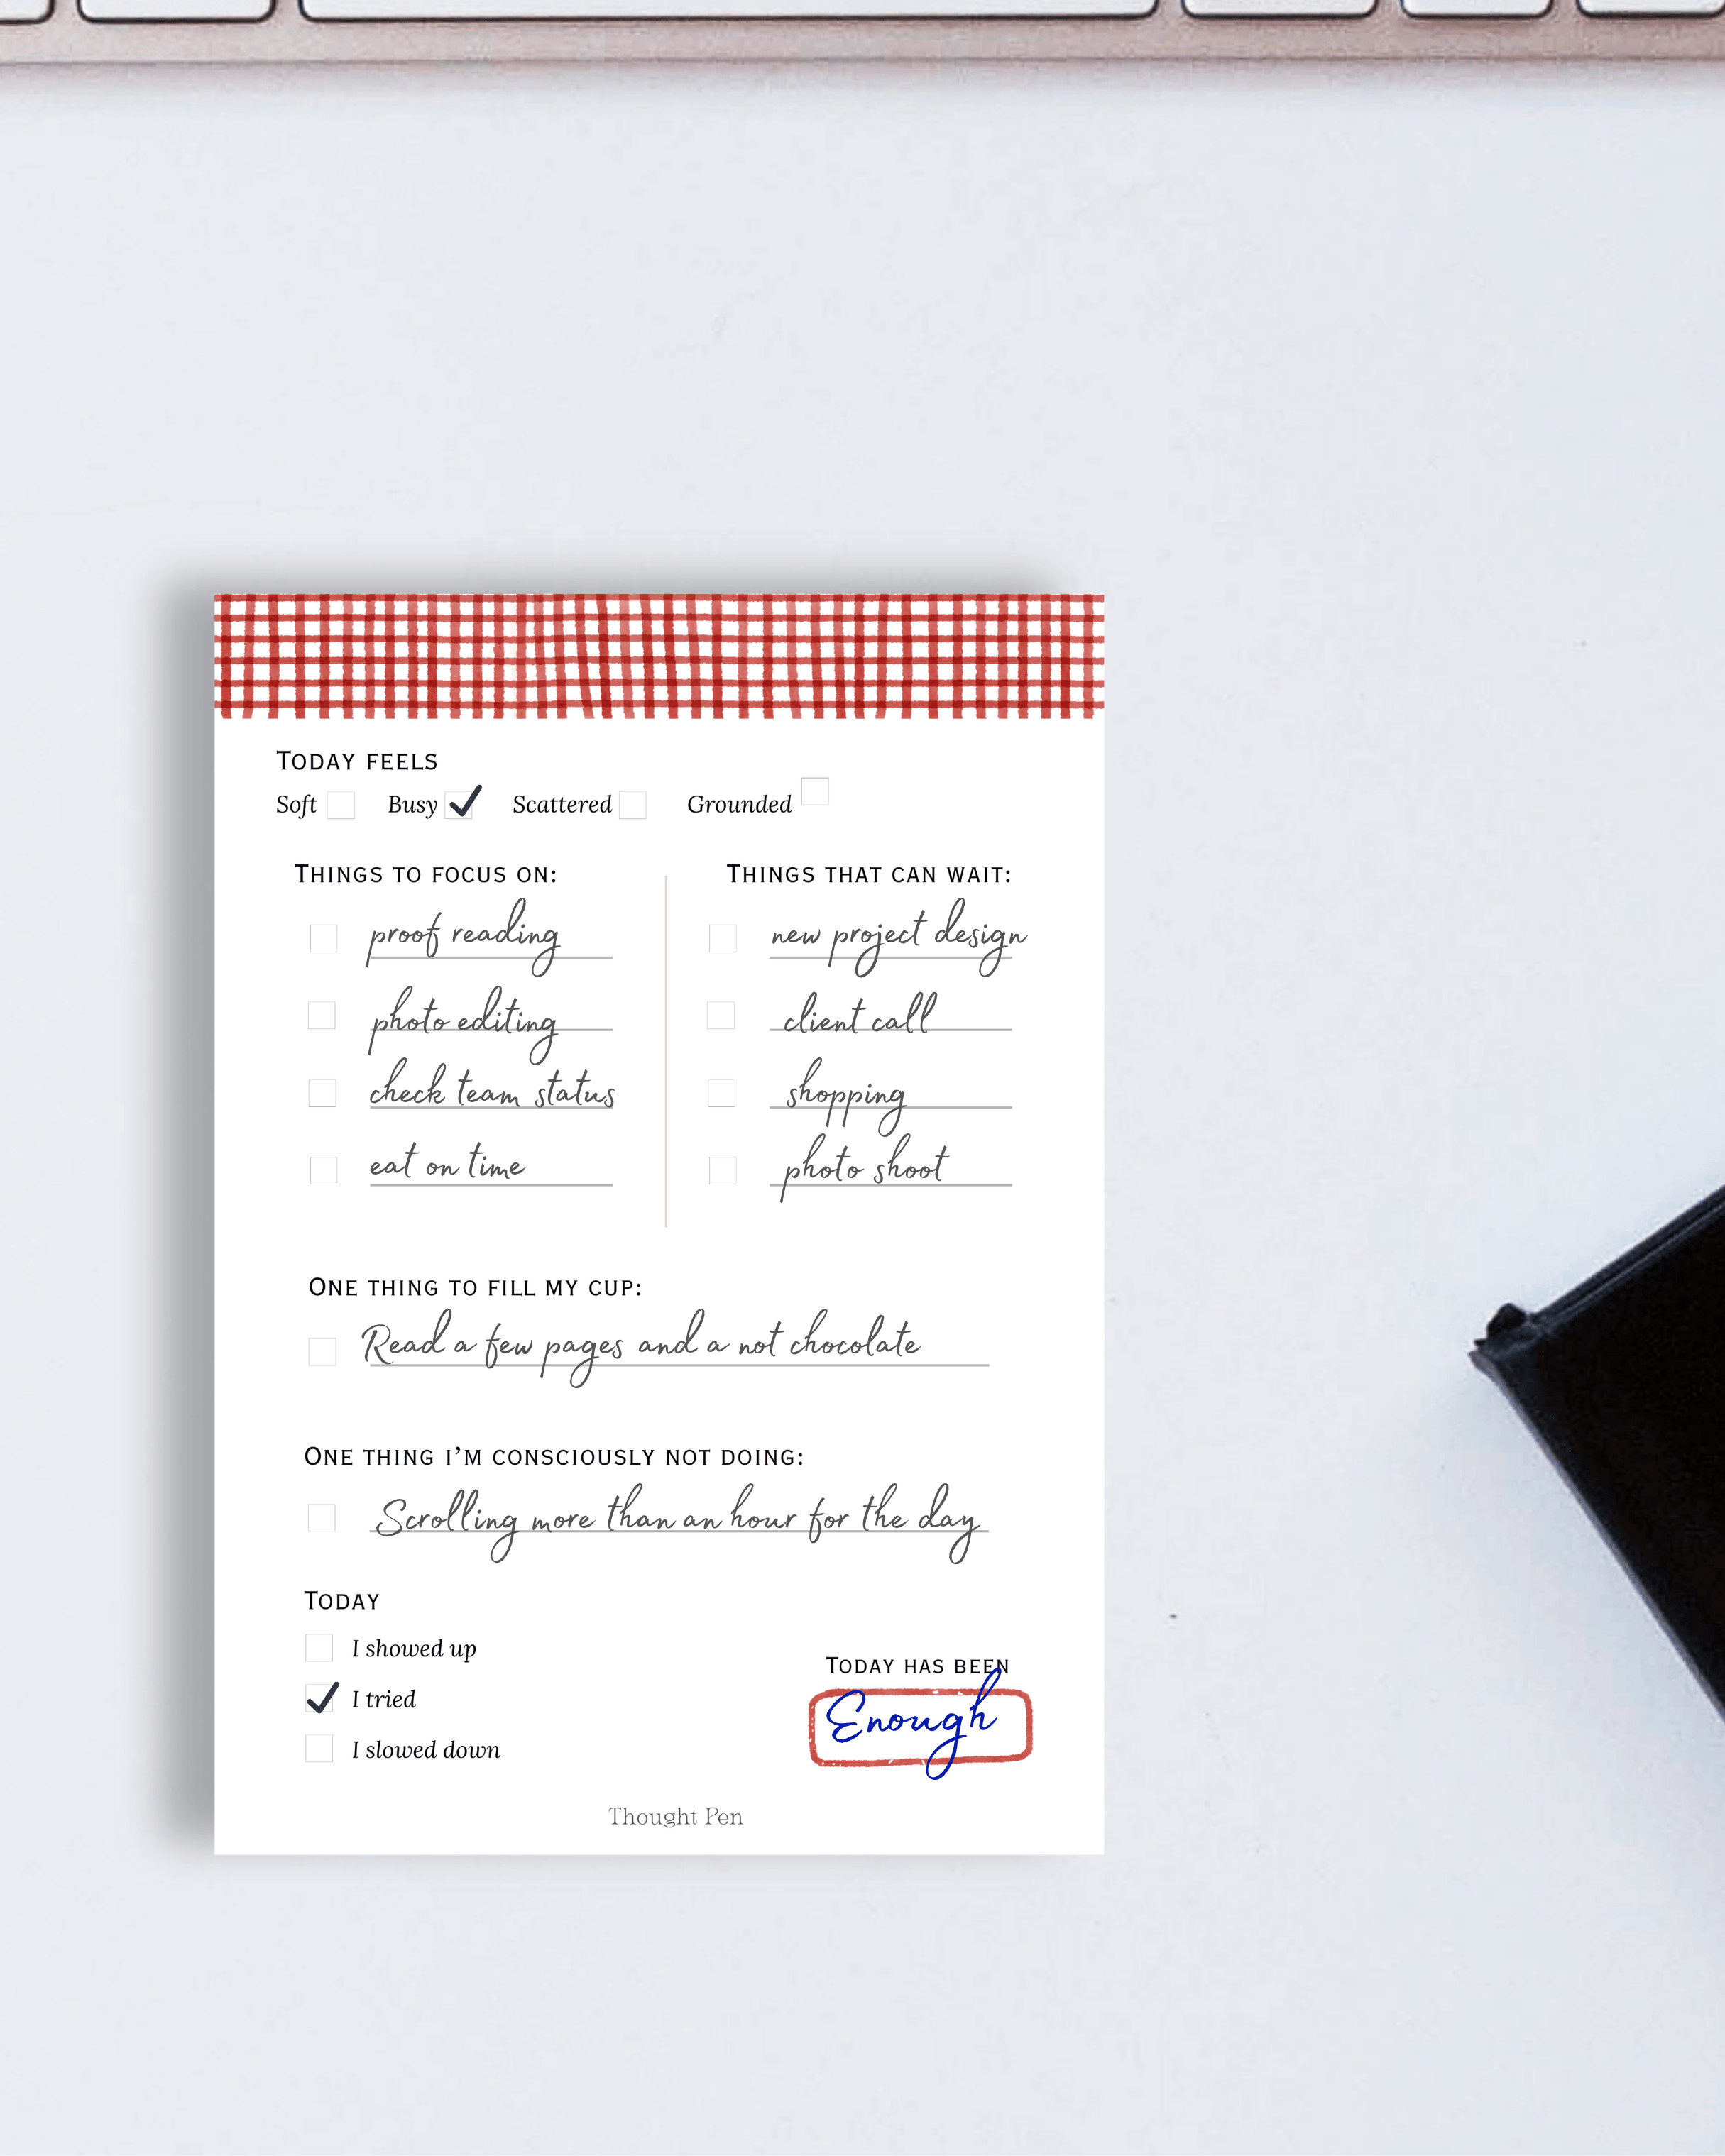 Today feels
Soft Busy Scattered Grounded
Things to focus on:
proof reading
photo editing
check team status
eat on time
Things that can wait:
new project design
client call
shopping
photo shoot
One thing to fill my cup:
Read a few pages and a not chocolate
One thing I’m consciously not doing:
Scrolling more than an hour for the day
Today
I showed up
I tried
I slowed down
Today has been
Enough
Thought Pen